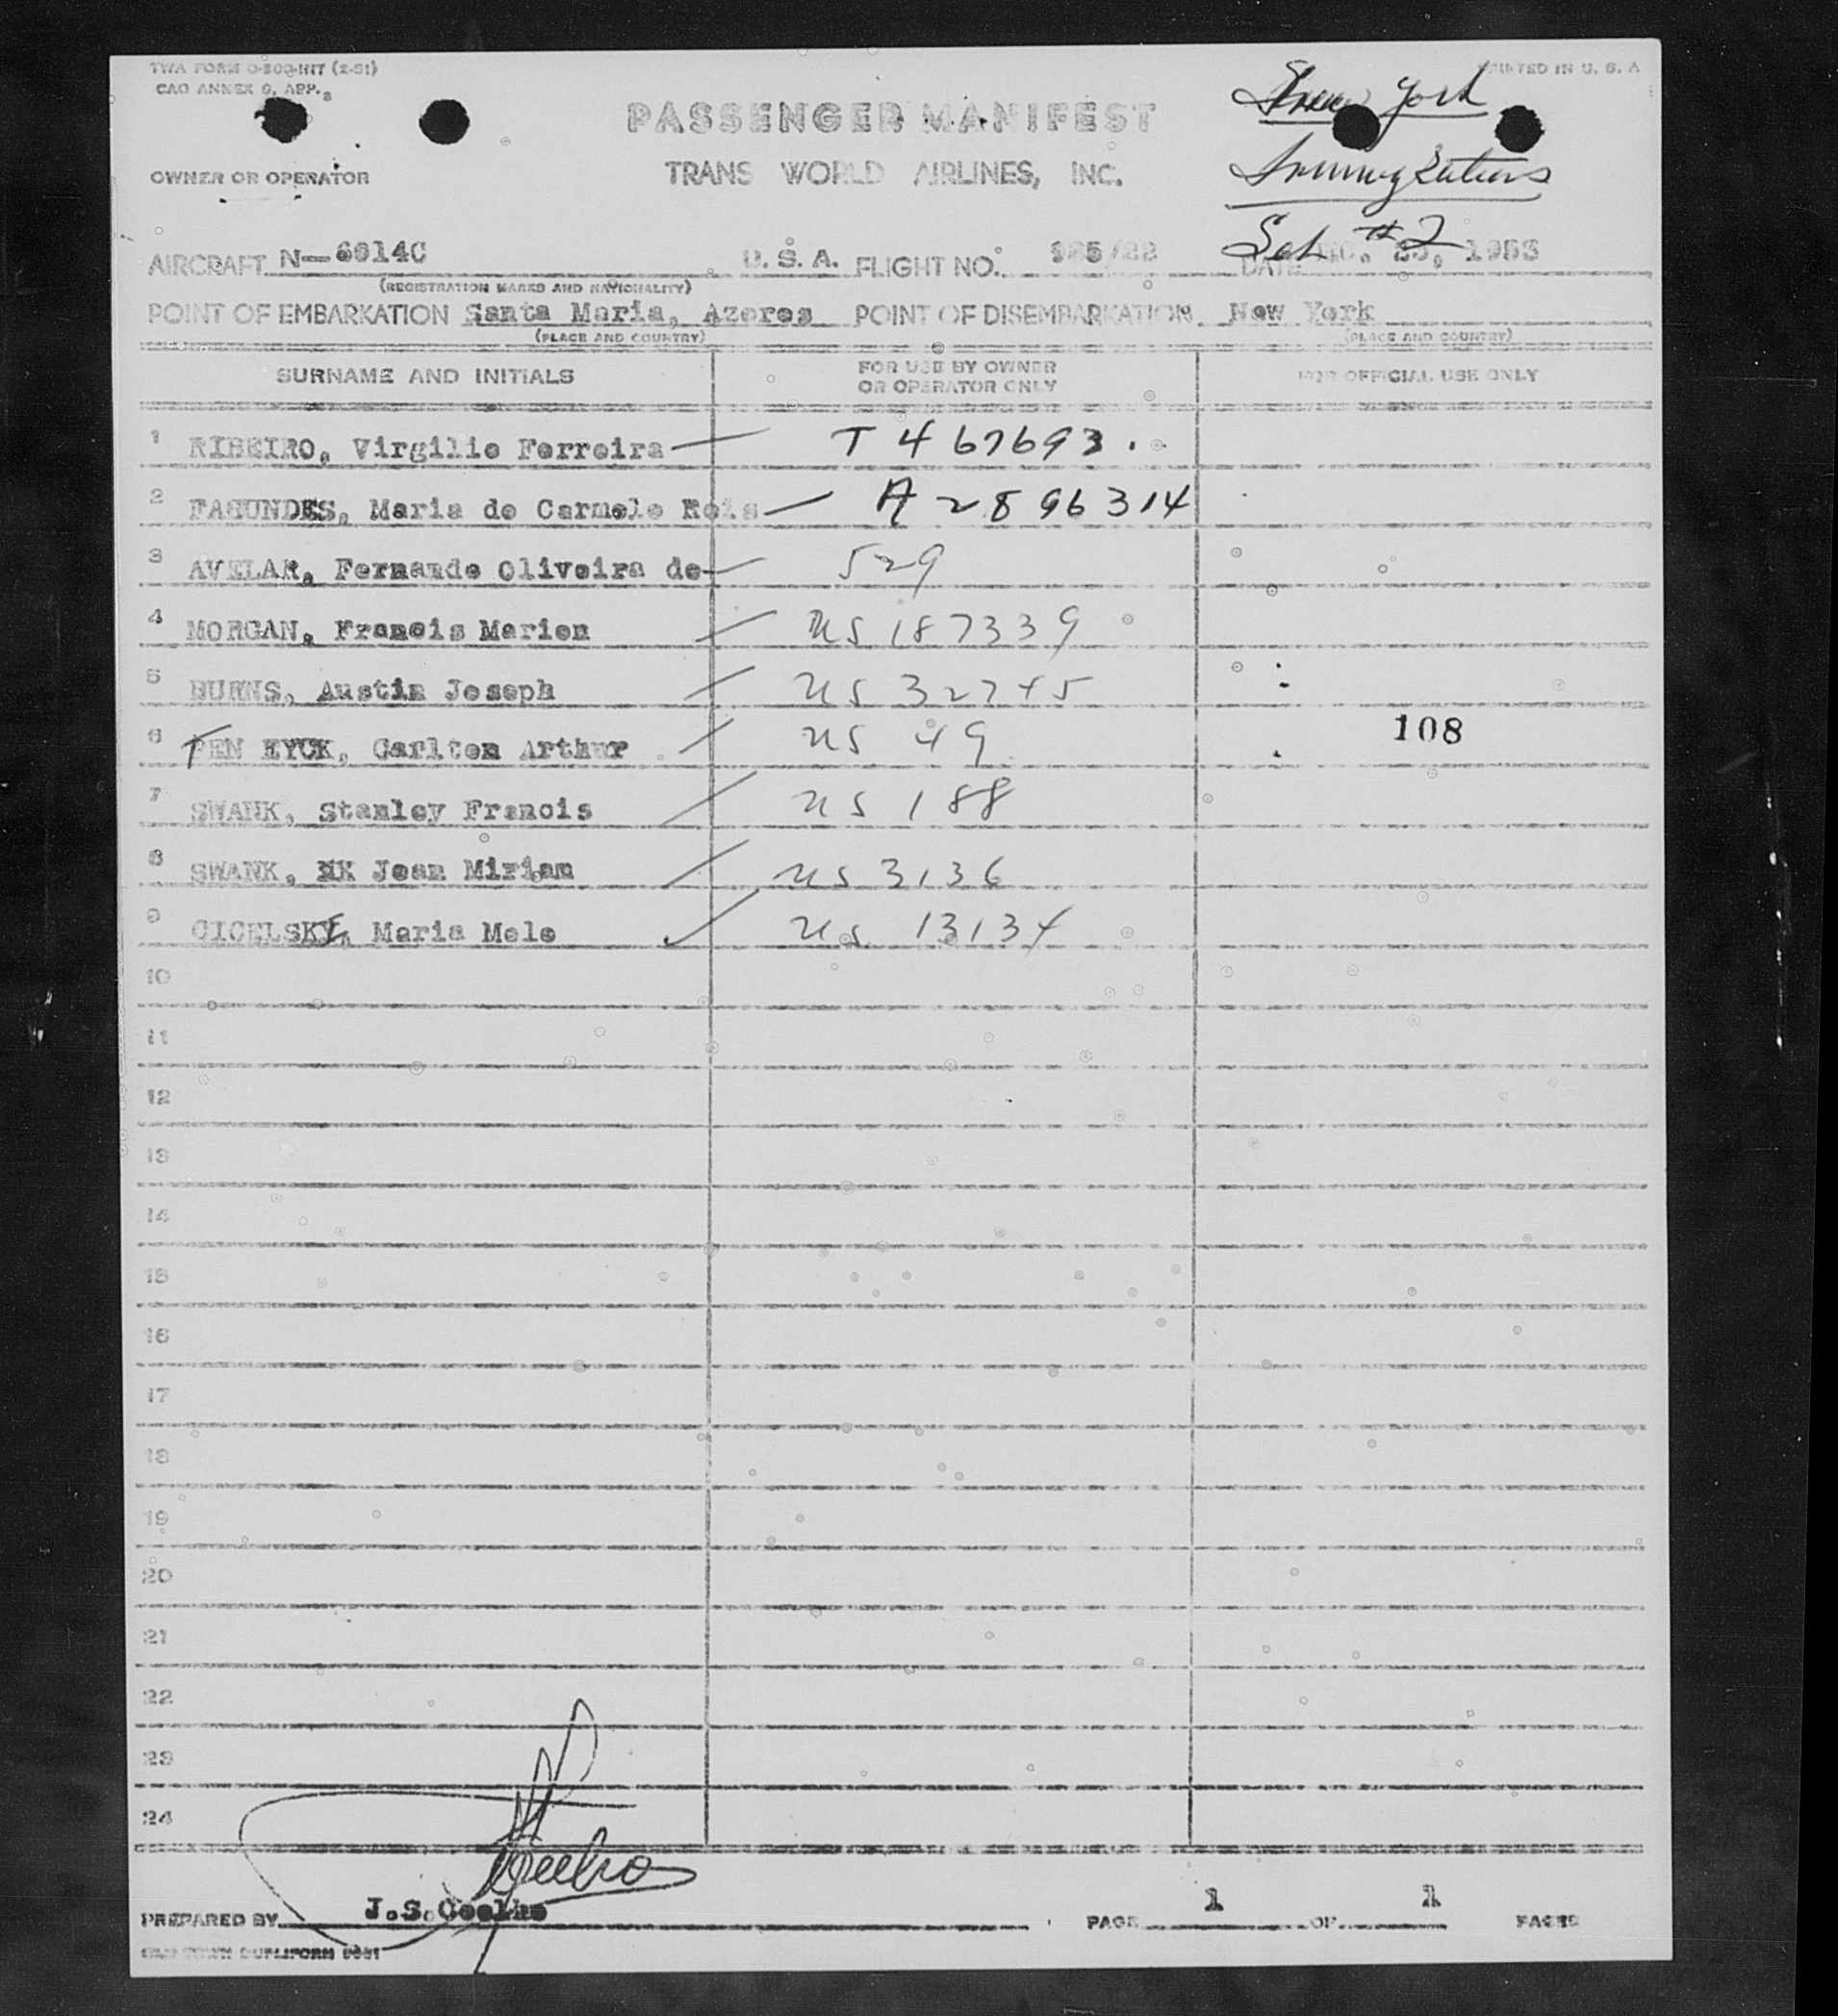 TWA FORM O-800-INT (2-51)
PRINTED IN U. S. A
CAO ANNEX 9, APP. 3
New York
PASSENGER MANIFEST
OWNER OR OPERATOR
TRANS WORLD AIRLINES, INC.
Immigrations
Set #2
AIRCRAFT N-6014C U. S. A. FLIGHT NO. 925/22 DATE 1953
(REGISTRATION MARKS AND NATIONALITY)
POINT OF EMBARKATION Santa Maria, Azores POINT OF DISEMBARKATION New York
(PLACE AND COUNTRY) (PLACE AND COUNTRY)
SURNAME AND INITIALS FOR USE BY OWNER OR OPERATOR ONLY FOR OFFICIAL USE ONLY
1 RIBEIRO, Virgilio Ferreira T 467693
2 FAGUNDES, Maria do Carmelo Reis A 2896314
3 AVELAR, Fernando Oliveira de 529
4 MORGAN, Francis Marion US 187339
5 BURNS, Austin Joseph US 32745
6 TEN EYCK, Carlton Arthur US 49 108
7 SWANK, Stanley Francis US 188
8 SWANK, Jean Miriam US 3136
9 CICELSKY, Maria Melo US 13134
10
11
12
13
14
15
16
17
18
19
20
21
22
23
24
PREPARED BY J.S.Coelho PAGE 1 OF 1 PAGES